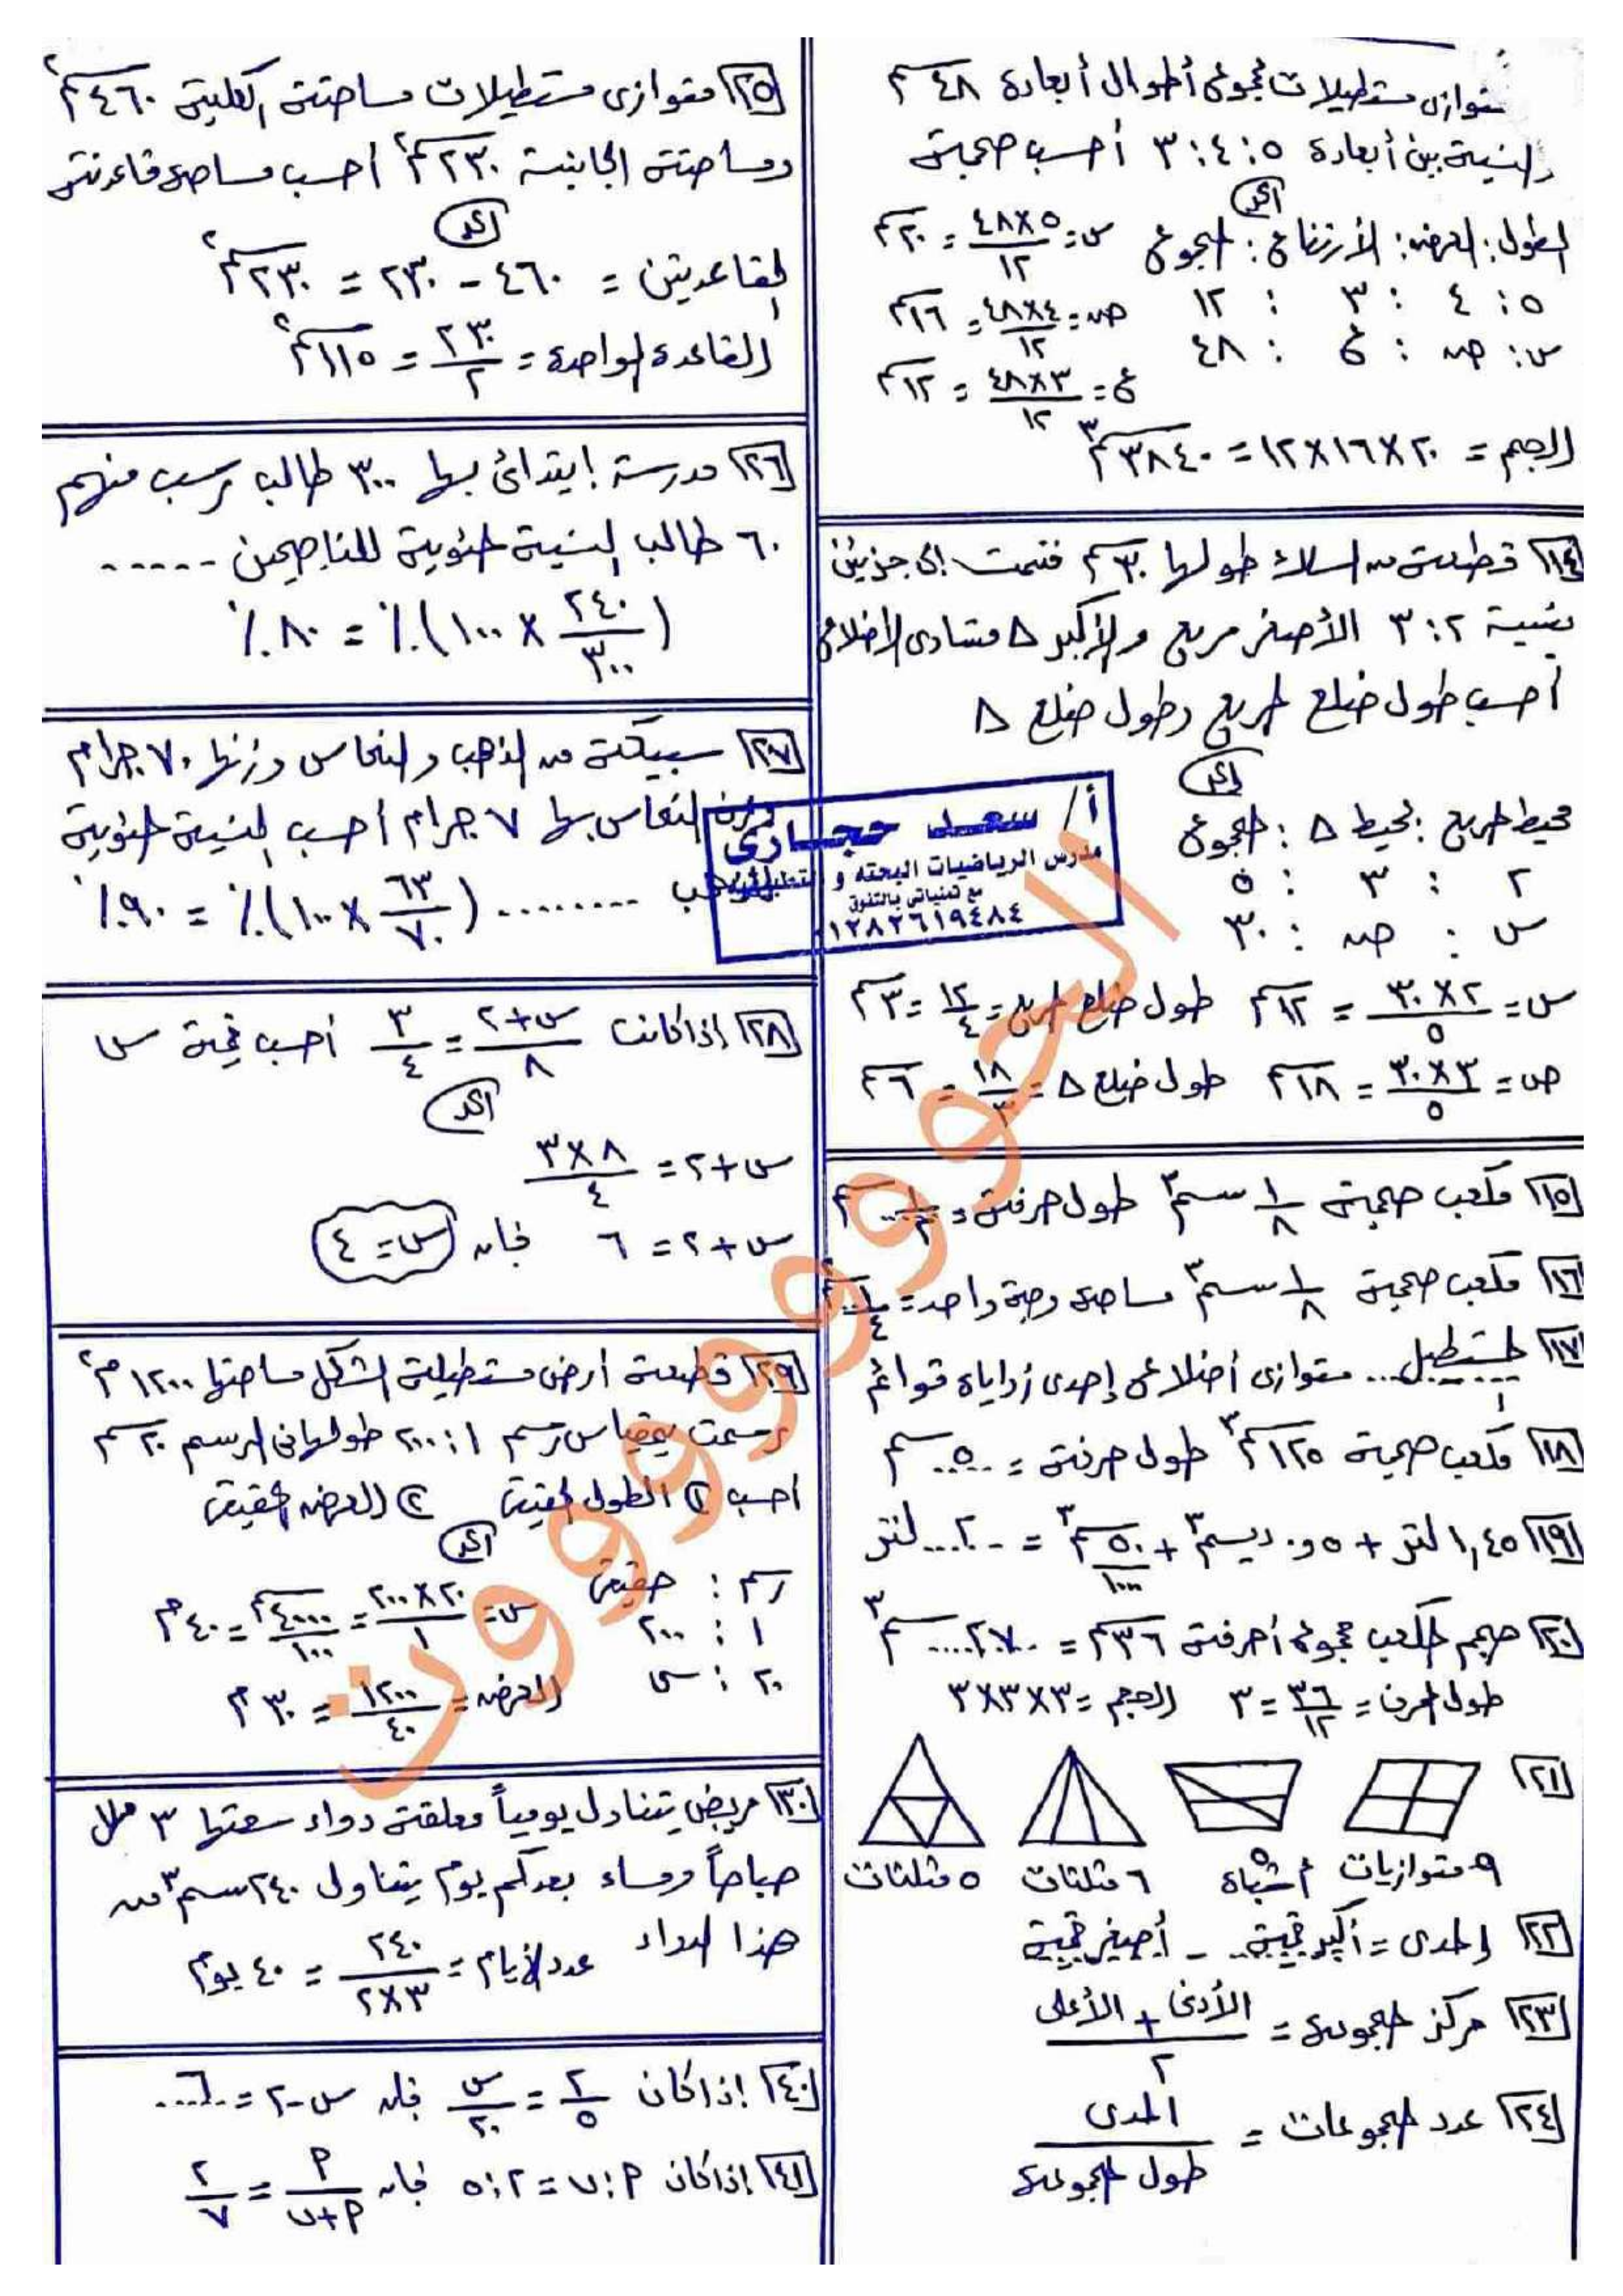 متوازى مستطيلات مجموع أطوال أبعاده ٤٨ سم
والنسبة بين أبعاده ٥ : ٤ : ٣ أحسب حجمه
الحل
الطول : العرض : الأرتفاع : المجموع
٥ : ٤ : ٣ : ١٢
س : ص : ع : ٤٨
س = ٥×٤٨/١٢ = ٢٠ سم
ص = ٤×٤٨/١٢ = ١٦ سم
ع = ٣×٤٨/١٢ = ١٢ سم
الحجم = ٢٠ × ١٦ × ١٢ = ٣٨٤٠ سم٣
١٤ قطعة من السلك طولها ٣٠ سم قسمت إلى جزئين
بنسبة ٢ : ٣ الأصغر مربع والأكبر △ متساوى الأضلاع
أحسب طول ضلع المربع وطول ضلع △
الحل
محيط المربع : محيط △ : المجموع
٢ : ٣ : ٥
س : ص : ٣٠
س = ٢×٣٠/٥ = ١٢ سم طول ضلع المربع = ١٢/٤ = ٣ سم
ص = ٣×٣٠/٥ = ١٨ سم طول ضلع △ = ١٨/٣ = ٦ سم
١٥ مكعب حجمه ١/٨ سم٣ طول حرفه = ١/٢ سم
١٦ مكعب حجمه ١/٨ سم٣ مساحة وجه واحد = ١/٤ سم٢
١٧ المستطيل ... متوازى أضلاع إحدى زواياه قوائم
١٨ مكعب حجمه ١٢٥ سم٣ طول حرفه = ..٥.. سم
١٩ ١,٤٥ لتر + ٠,٥ ديسم٣ + ٥٠/١٠٠٠ سم٣ = ..٢... لتر
٢٠ حجم المكعب مجموع أحرفه ٣٦ سم = ..٢٧.... سم٣
طول الحرف = ٣٦/١٢ = ٣ الحجم = ٣×٣×٣
٢١
٩ متوازيات ٥ أشباة ٦ مثلثات ٥ مثلثات
٢٢ المدى = أكبر قيمة - أصغر قيمة
٢٣ مركز المجموعة = الأدنى + الأعلى / ٢
٢٤ عدد المجموعات = المدى / طول المجموعة
٢٥ متوازى مستطيلات مساحته الكلية ٤٦٠ سم٢
ومساحته الجانبية ٢٣٠ سم٢ أحسب مساحة قاعدته
الحل
القاعدتين = ٤٦٠ - ٢٣٠ = ٢٣٠ سم٢
القاعدة الواحدة = ٢٣٠/٢ = ١١٥ سم٢
٢٦ مدرسة إبتدائى بها ٣٠٠ طالب رسب منهم
٦٠ طالب النسبة المئوية للناجحين ......
(٢٤٠/٣٠٠ × ١٠٠)٪ = ٨٠٪
٢٧ سبيكة من الذهب والنحاس وزنها ٧٠ جرام
وزن النحاس بها ٧ جرام أحسب النسبة المئوية
للذهب ......... (٦٣/٧٠ × ١٠٠)٪ = ٩٠٪
أ / سعد حجازى
مدرس الرياضيات البحته و التطبيقية
مع تمنياتى بالتفوق
٠١٢٨٢٦١٩٤٨٤
٢٨ إذا كانت س+٢/٨ = ٣/٤ أحسب قيمة س
الحل
س+٢ = ٨×٣/٤
س+٢ = ٦ فإن س = ٤
٢٩ قطعة أرض مستطيلة الشكل مساحتها ١٢٠٠ م٢
رسمت بمقياس رسم ١ : ٢٠٠ طولها فى الرسم ٢٠ سم
احسب ١ الطول الحقيقى ٢ العرض الحقيقى
الحل
رسم : حقيقى
١ : ٢٠٠
٢٠ : س
س = ٢٠×٢٠٠/١ = ٤٠٠٠ سم/١٠٠ = ٤٠ م
العرض = ١٢٠٠/٤٠ = ٣٠ م
٣٠ مريض يتناول يومياً معلقة دواء سعتها ٣ ملل
صباحاً ومساء بعد كم يوم يتناول ٢٤٠ سم٣ من
هذا الدواء عدد الأيام = ٢٤٠/٢×٣ = ٤٠ يوم
٤٠ إذا كان ٢/٥ = س/٢٠ فإن س-٢ = ..٦...
٤١ إذا كان P : ب = ٢ : ٥ فإن P/P+ب = ٢/٧